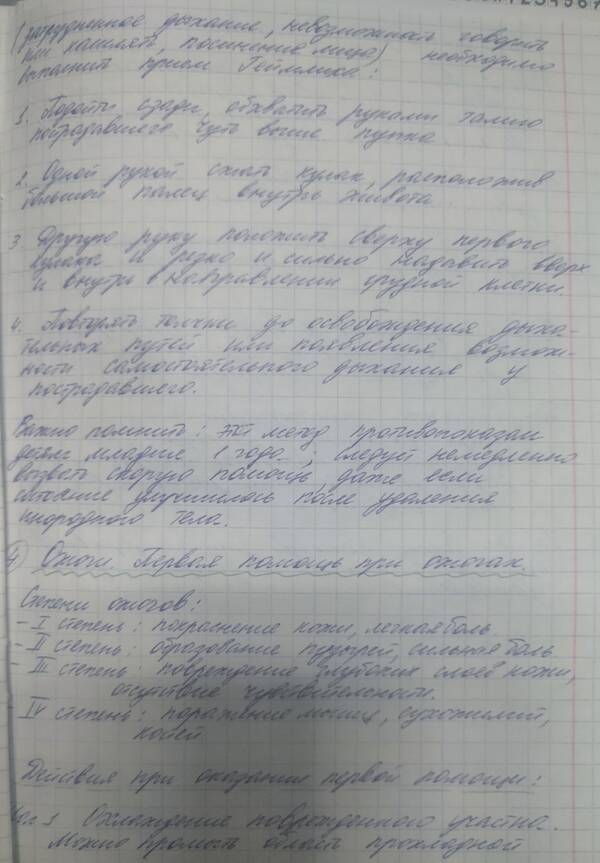 1234567
(затрудненное дыхание, невозможность говорить
или кашлять, посинение лица) необходимо
выполнить прием Геймлиха:
1. Подойти сзади, обхватить руками талию
пострадавшего чуть выше пупка.
2. Одной рукой сжать кулак, расположив
большой палец внутрь живота
3. Другую руку положить сверху первого
кулака и резко и сильно надавить вверх
и внутрь в направлении грудной клетки.
4. Повторять толчки до освобождения дыха-
тельных путей или появления возмож-
ности самостоятельного дыхания у
пострадавшего.
Важно помнить: этот метод противопоказан
детям младше 1 года; следует немедленно
вызвать скорую помощь, даже если
улучшилось после удаления
инородного тела.
7) Ожоги. Первая помощь при ожогах.
Степени ожогов:
- I степень: покраснение кожи, легкая боль.
- II степень: образование пузырей, сильная боль
- III степень: повреждение глубоких слоев кожи,
отсутствие чувствительности.
- IV степень: поражение мышц, сухожилий,
костей
Действия при оказании первой помощи:
Шаг 1 Охлаждение поврежденного участка.
Можно промыть область прохладной